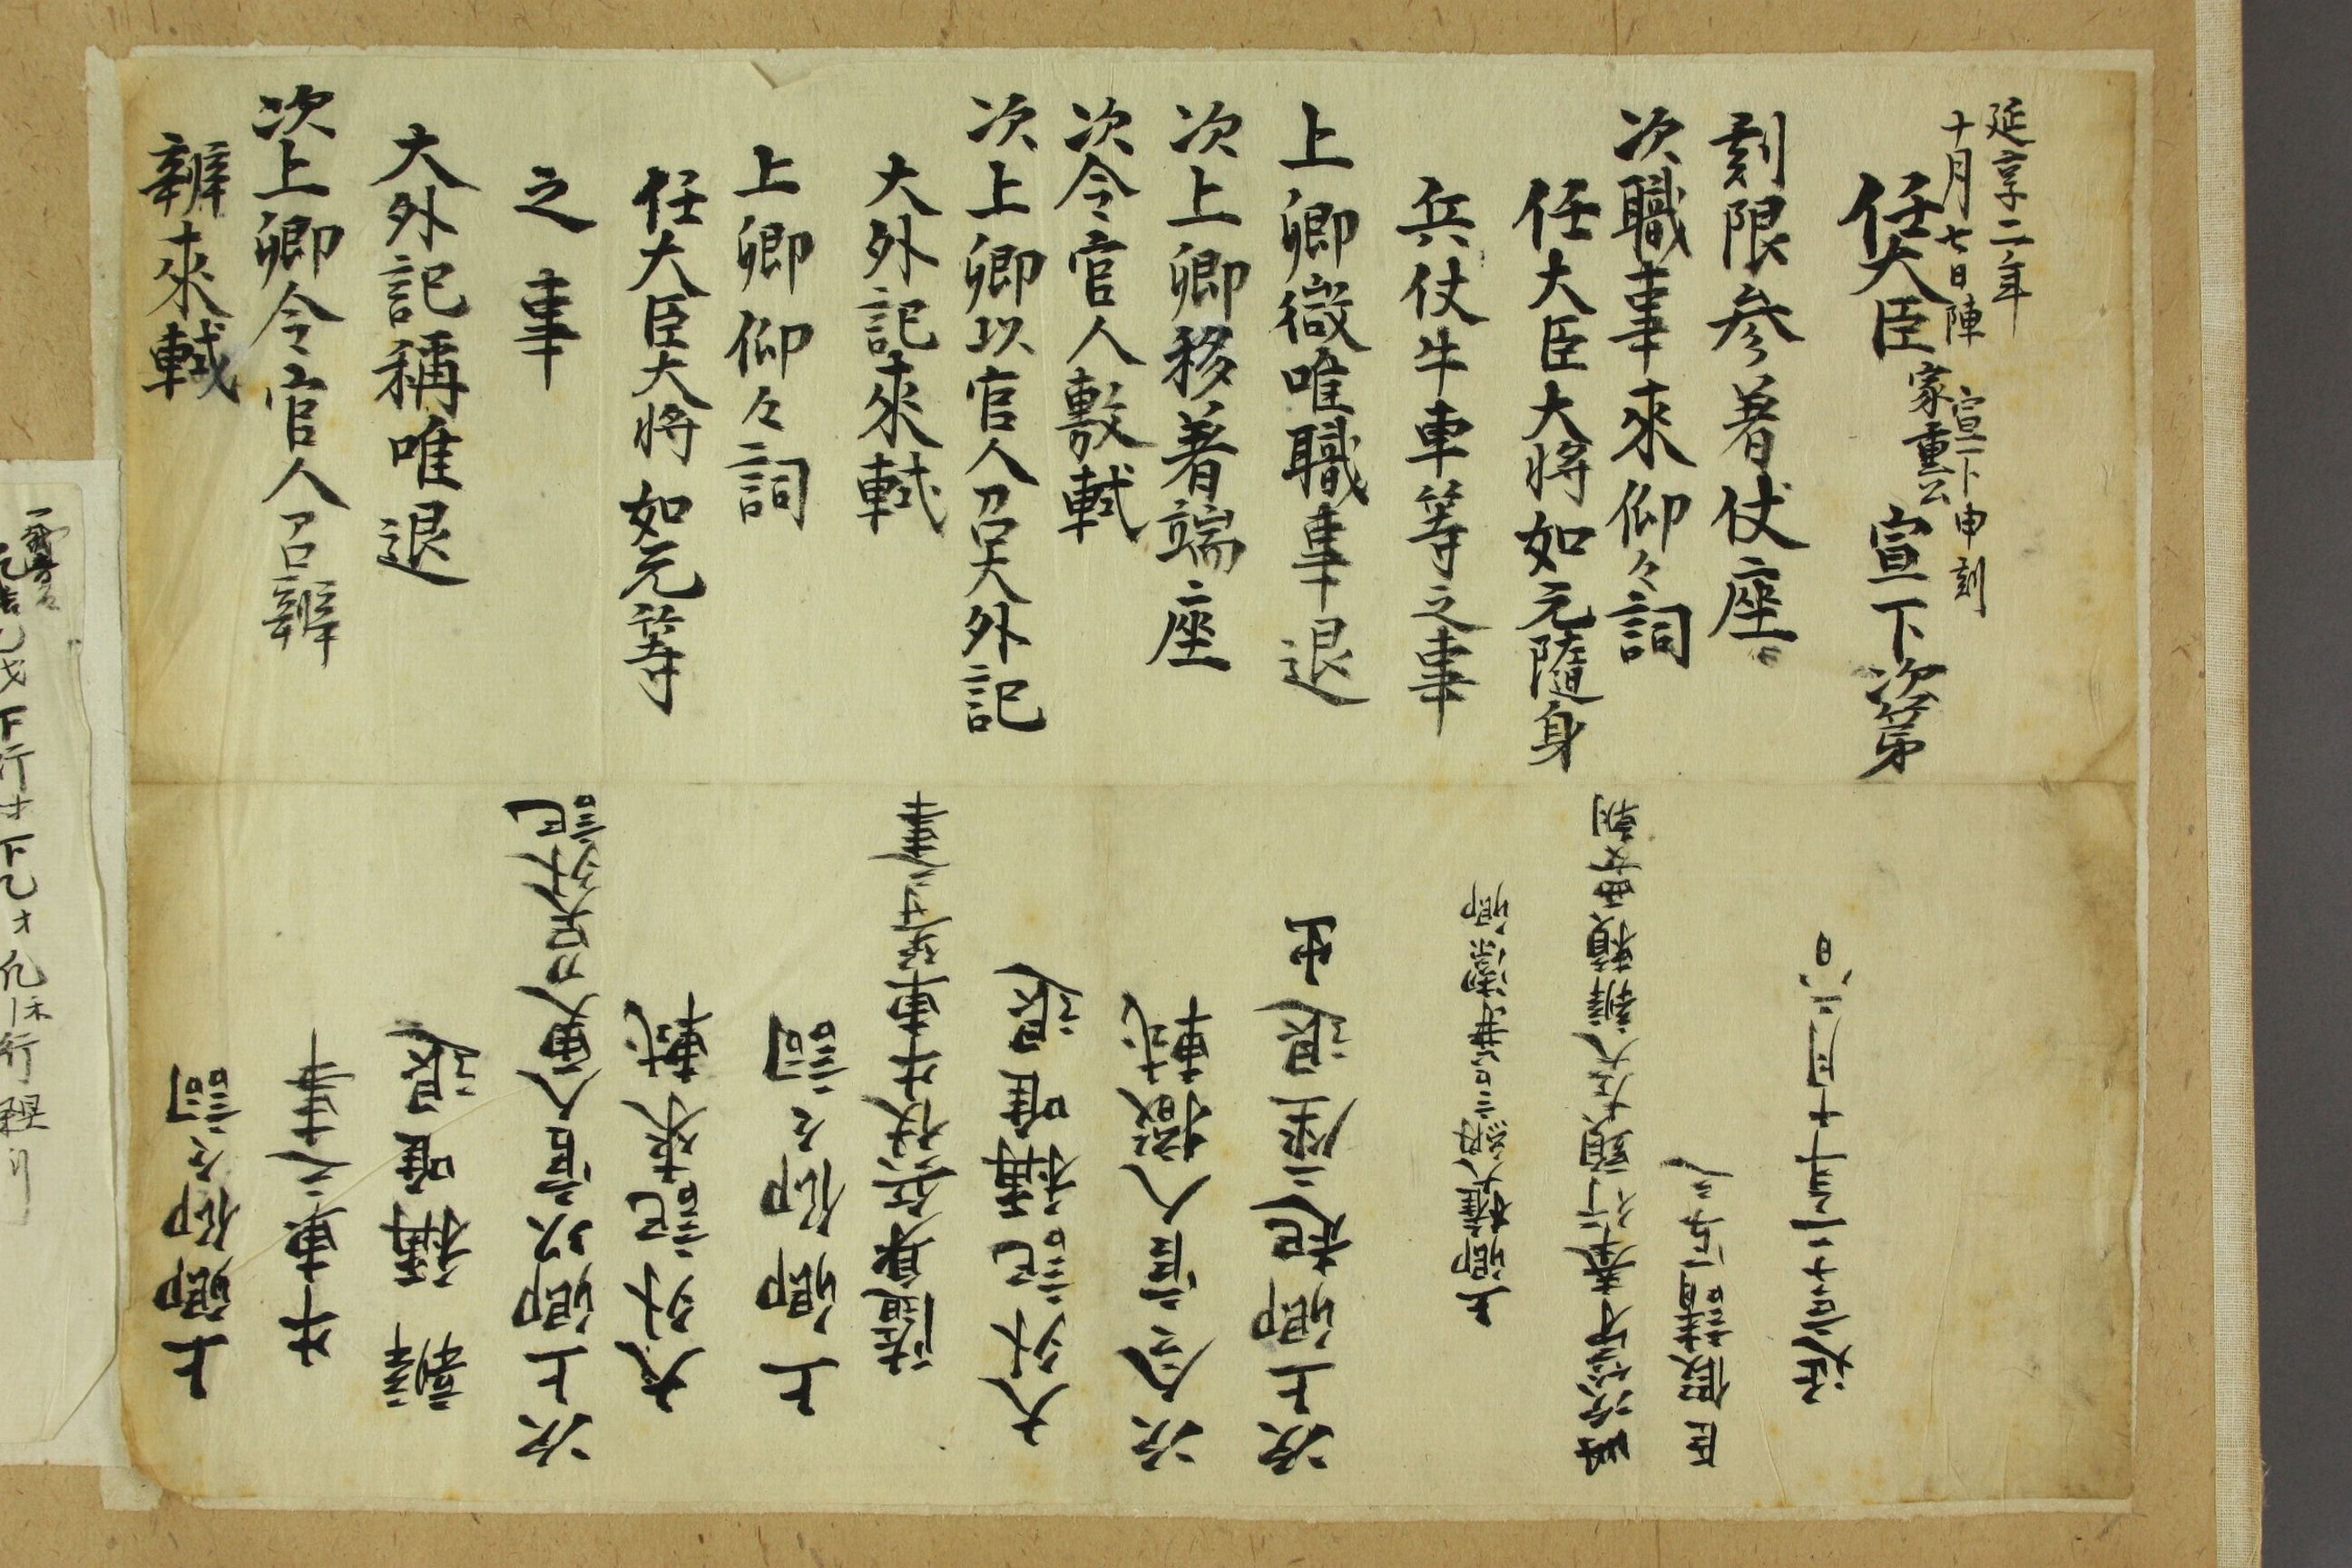 延享二年
十月七日陣 宣下申刻
任大臣 家重公 宣下次第
刻限参着仗座
次職事來仰々詞
任大臣大将如元隨身
兵仗牛車等之事
上卿微唯職事退
次上卿移着端座
次令官人敷軾
次上卿以官人召大外記
大外記來軾
上卿仰々詞
任大臣大将如元等
之事
大外記稱唯退
次上卿令官人召辨
辨來軾
上卿仰々詞
牛車之事
辨稱唯退
次上卿以官人更召大外記
大外記來軾
上卿仰々詞
隨身兵仗牛車等之事
大外記稱唯退
次令官人撤軾
次上卿起座退出
上卿權大納言 卿
次第 奉行頭左大辨頼要朝
臣假請写之
延享二年十月六日